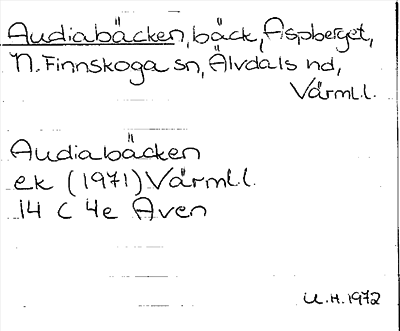 Audiabäcken, bäck, Aspberget,
N. Finnskoga sn, Älvdals hd,
Värml.l.
Audiabäcken
ek (1971) Värml.l.
14 C 4e Aven
U.H. 1972